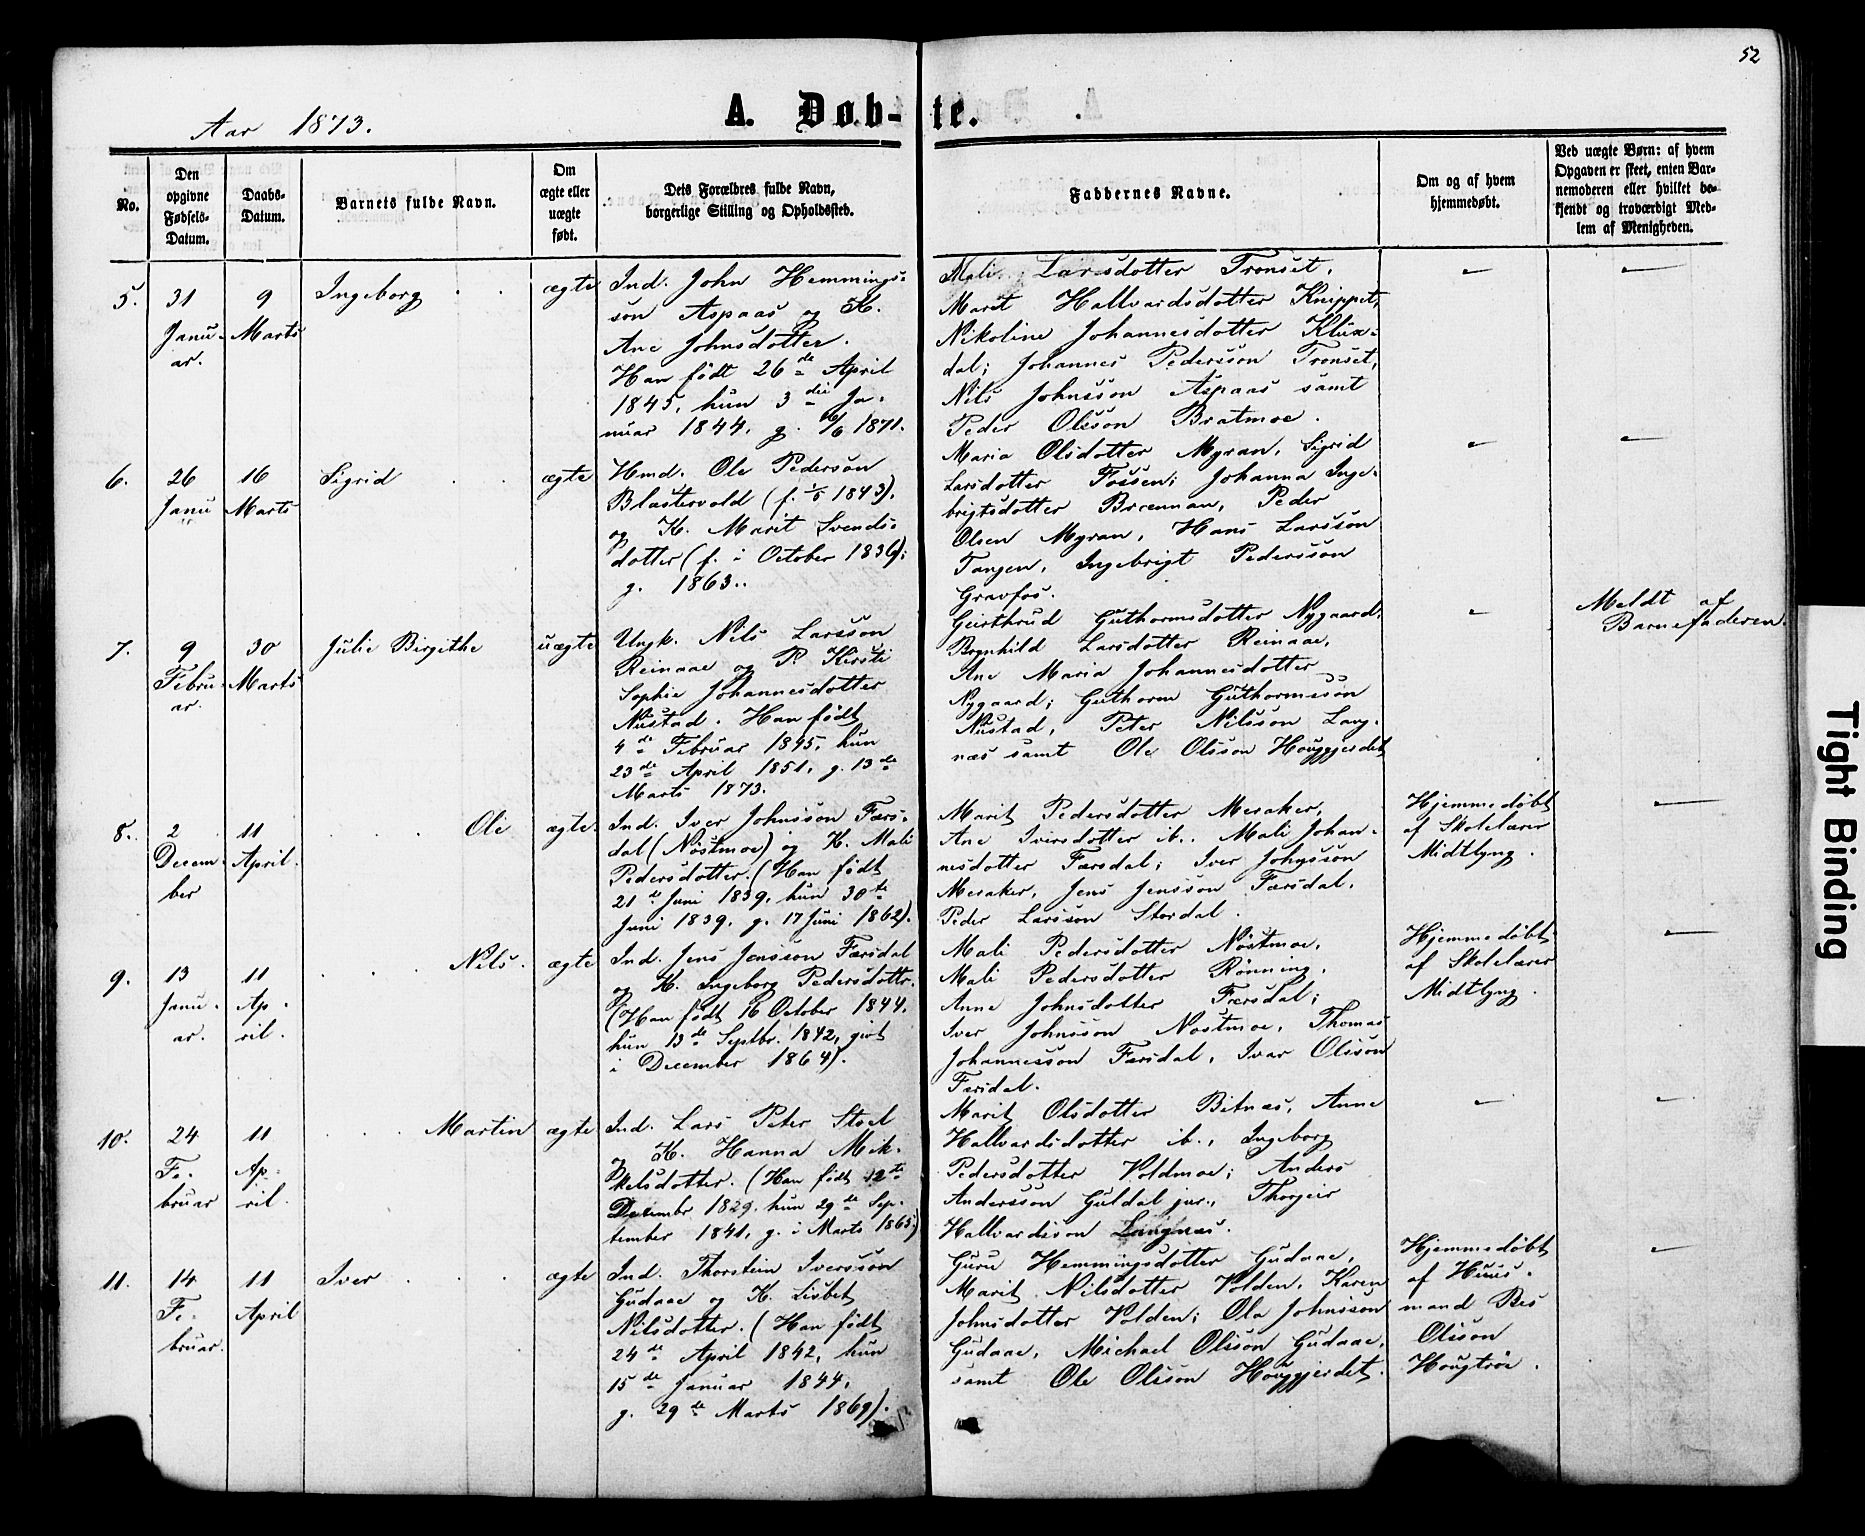 52
Aar 1873.
A. Døb-te.
No.
Den
opgivne
Fødsels-
Datum.
Daabs-
Datum.
Barnets fulde Navn.
Om
ægte eller
uægte
født.
Dets Forældres fulde Navn,
borgerlige Stilling og Opholdssted.
Faddernes Navne.
Om og af hvem
hjemmedøbt.
Ved uægte Børn: af hvem
Opgaven er skeet, enten Bar-
nemoderen eller hvilket be-
kjendt og troværdigt Med-
lem af Menigheden.
5.
31
Janu-
ar.
9
Marts
Ingeborg
ægte
Ind. John Hemmings-
søn Aspaas og K.
Ane Johnsdotter.
Han født 26de April
1845, hun 3die Ja-
nuar 1844, g. 1871.
Mali Larsdotter Tronset,
Marit Hallvardsdotter Knippet,
Nikoline Johannesdotter Klux-
dal; Johannes Pedersson Tronset,
Nils Johnsson Aspaas samt
Peder Olsson Bratmoe.
6.
26
Janu
16
Marts
Sigrid
ægte
Hmd. Ole Pederson
Blastervold (f. 1/5 1843).
og K. Marit Svends-
dotter (f. i October 1836);
g. 1863..
Maria Olsdotter Myran, Sigrid
Larsdotter Fossen; Johanna Inge-
brigtsdotter Brænnan, Peder
Olsen Myran, Hans Larsson
Tangen, Ingebrigt Pedersson
Gravfos.
7.
9
Febru-
ar.
30
Marts
Julie Birgithe
uægte
Ungk. Nils Larsson
Reinaae og P. Kirsti
Sophie Johannesdotter
Nustad. Han født
4de Februar 1845, hun
23de April 1851, g. 13de
Marts 1873.
Geirthrud Guthormsdotter Nygaard,
Brynhild Larsdotter Reinaae,
Ane Maria Johannesdotter
Nygaard; Guthorm Guthormsson
Nustad, Peter Nilsson Lang-
næs samt Ole Olsson Houggjerdet
Meldt af
Barnefaderen.
8.
2
Decem-
ber
11
April.
Ole
ægte.
Ind. Iver Johnsson Færs-
dal (Nøstmoe) og K. Mali
Pedersdotter. (Han født
21de Juni 1839, hun 30te
Juni 1839, g. 17 Juni 1862).
Marit Pedersdotter Meraker,
Ane Iversdotter ib., Mali Johan-
nesdotter Færsdal; Iver Johnsson
Meraker, Jens Jensson Færsdal,
Peder Larsson Stordal.
Hjemmedøbt
af Skolelærer
Midtlyng.
9.
13
Janu-
ar.
11
Ap-
ril.
Nils.
ægte
Ind. Jens Jensson Færsdal
og K. Ingeborg Pedersdottr.
(Han født 16 October 1844,
hun 13de Septbr. 1842, givt
i December 1864).
Mali Pedersdotter Nøstmoe,
Mali Pedersdotter Rønning,
Anne Johnsdotter Færsdal;
Iver Johnsson Nøstmoe, Thomas
Johannesson Færsdal, Ivar Olsson
Færsdal.
Hjemmedøbt
af Skolelærer
Midtlyng.
10.
24
Fe-
bruar
11
Ap-
ril.
Martin
ægte
Ind. Lars Peter Stoel
og K. Hanna Mik-
kelsdotter. (Han født 12te
Decembr 1829, hun 29de Sep-
tember 1841, g. i Marts 1865)
Marit Olsdotter Bitnæs, Anne
Hallvardsdotter ib., Ingeborg
Pedersdotter Voldmoe; Anders
Andersson Guldal jur., Thorgeir
Hallvardsson Langnæs.
11.
14
Fe-
bruar.
11
April
Iver
ægte
Ind. Thorstein Iversson
Gudaae og K. Lisbet
Nilsdotter. (Han født
24de April 1842, hun
15de Januar 1844,
g. 29de Marts 1869).
Guru Hemmingsdotter Gudaae,
Marit Nilsdotter Volden, Karen
Johnsdotter Volden; Ola Johnsson
Gudaae, Michael Olsson Gudaae,
samt Ole Olsson Houggjerdet.
Hjemmedøbt
af Huus-
mand Bes
Olsson
Hougtrøe.
Tight Binding